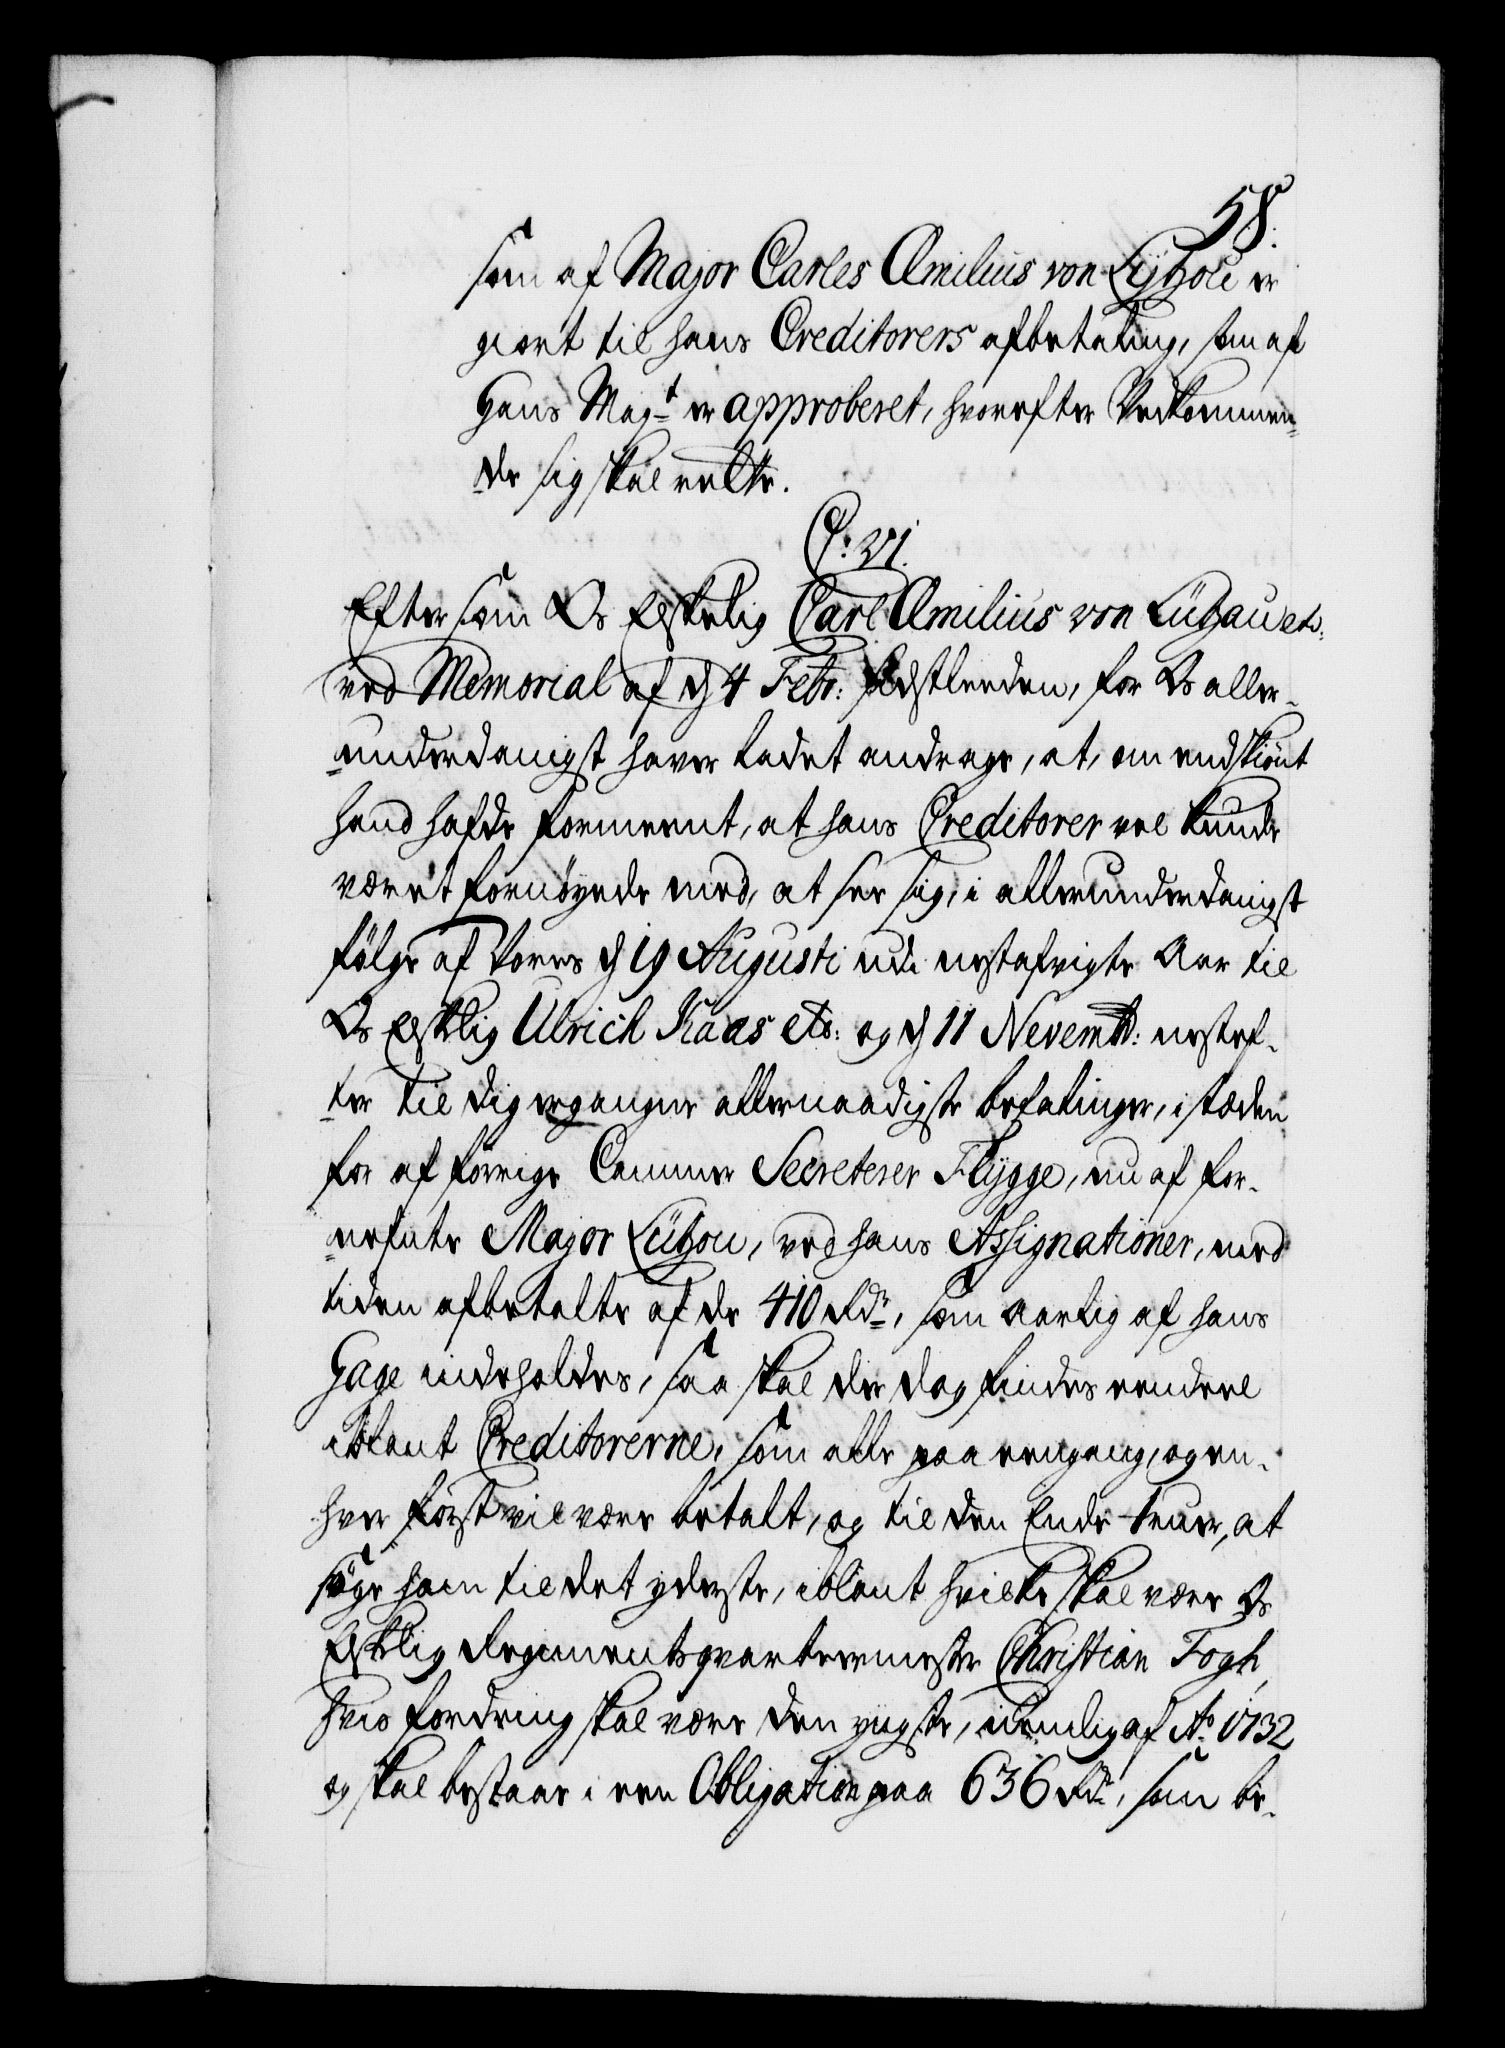 58.
som af Major Carles Æmilius von Lützou er
giort til hans Creditorers afbetaling, som af
Hans May.t er approberet, hvorefter Vedkommen-
de sig skal rette.
C: VI.
Eftersom Os Elskelig Carl Æmilius von Lützau etc:
ved Memorial af d 4 Febr: sidstleeden, for Os aller-
underdanigst haver ladet andrage, at, om endskiönt
hand hafde formeent, at hans Creditorer vel kunde
været fornöyede med, at see sig, i allerunderdanigst
fölge af Vores d 19 Augusti udi nestafvigte Aar til
Os Elsklig Ulrich Kaas etc: og d 11 Novembr: nestef-
ter til dig ergangne allernaadigste befalinger, i stæden
for af forrige Cammer Secreterer Flygge, nu af for-
nefnte Major Lützou, ved hans Assignationer, med
tiden afbetalte af de 410 Rdr, som aarlig af hans
Gage indeholdes, saa skal der dog findes eendeel
iblant Creditorerne, som alle paa eengang, og en-
hver först vil være betalt, og til den Ende truer, at
söge ham til det yderste, iblant hvilke skal være Os
Elsklig Regimentsqvarteermester Christian Fogh,
hvis fordring skal være den yngste, nemlig af Ao 1732
og skal bestaae i een Obligation paa 636 Rdr, som be-